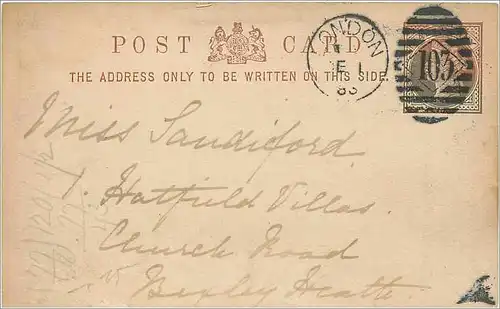 POST CARD
THE ADDRESS ONLY TO BE WRITTEN ON THIS SIDE.
LONDON
E 1
83
103
Miss Sandiford
Hatfield Villas.
Church Road
Bexley Heath